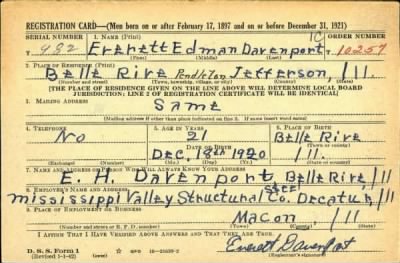 REGISTRATION CARD—(Men born on or after February 17, 1897 and on or before December 31, 1921)
SERIAL NUMBER 1. NAME (Print) ORDER NUMBER
U 982 Everett Edman Davenport 1C 10257
2. PLACE OF RESIDENCE (Print)
Belle Rive Pendleton Jefferson, Ill.
(Town, township, village, or city) (County) (State)
[THE PLACE OF RESIDENCE GIVEN ON THE LINE ABOVE WILL DETERMINE LOCAL BOARD
JURISDICTION; LINE 2 OF REGISTRATION CERTIFICATE WILL BE IDENTICAL]
3. MAILING ADDRESS
Same
(Mailing address if other than place indicated on line 2. If same insert word same)
4. TELEPHONE 5. AGE IN YEARS 6. PLACE OF BIRTH
No 21 Belle Rive
DATE OF BIRTH
Dec. 1920 Ill.
(Exchange) (Number) (Mo.) (Day) (Yr.) (State or country)
7. NAME AND ADDRESS OF PERSON WHO WILL ALWAYS KNOW YOUR ADDRESS
E. Davenport Belle Rive, Ill
8. EMPLOYER'S NAME AND ADDRESS
Mississippi Valley Structural Steel Co. Decatur, Ill
9. PLACE OF EMPLOYMENT OR BUSINESS
Macon Ill
(Number and street or R. F. D. number) (Town) (County) (State)
I AFFIRM THAT I HAVE VERIFIED ABOVE ANSWERS AND THAT THEY ARE TRUE.
D. S. S. Form 1
(Revised 1-1-42)
Everett Davenport
(Registrant's signature)